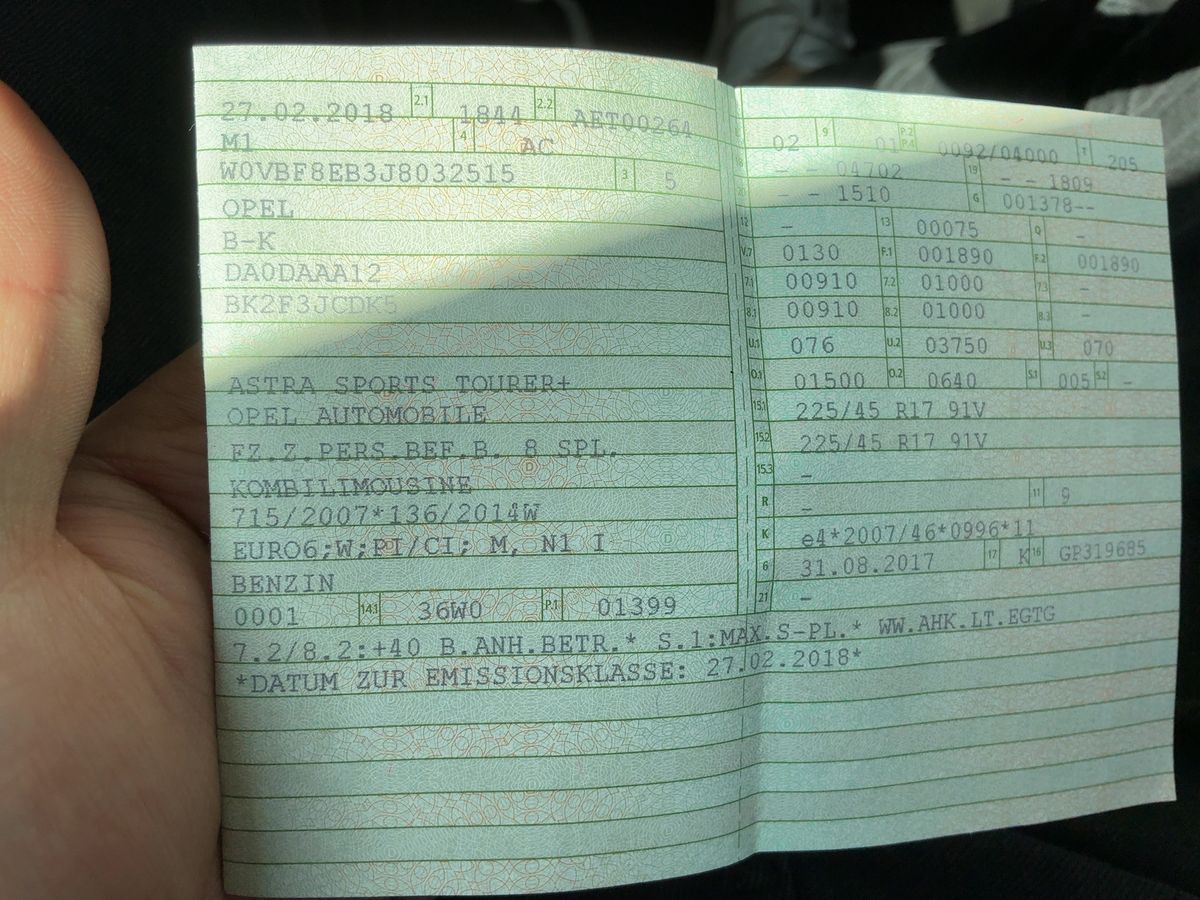 27.02.2018 2.1 1844 2.2 AET00264
M1 4 AC
W0VBF8EB3J8032515 3 5
OPEL
B-K
DA0DAAA12
BK2F3JCDK5
ASTRA SPORTS TOURER+
OPEL AUTOMOBILE
FZ.Z.PERS.BEF.B. 8 SPL.
KOMBILIMOUSINE
715/2007*136/2014W
EURO6;W;PI/CI; M, N1 I
BENZIN
0001 14.1 36W0 P.1 01399
02 9 01 P.2 P.4 0092/04000 T 205
- - 04702 19 - - 1809
20 - - 1510 G 001378--
12 - 13 00075 Q -
V.7 0130 F.1 001890 F.2 001890
7.1 00910 7.2 01000 7.3 -
8.1 00910 8.2 01000 8.3 -
U.1 076 U.2 03750 U.3 070
O.1 01500 O.2 0640 S.1 005 S.2 -
15.1 225/45 R17 91V
15.2 225/45 R17 91V
15.3 -
R - 11 9
K e4*2007/46*0996*11
6 31.08.2017 17 K 16 GP319685
21 -
7.2/8.2:+40 B.ANH.BETR.* S.1:MAX.S-PL.* WW.AHK.LT.EGTG
*DATUM ZUR EMISSIONSKLASSE: 27.02.2018*